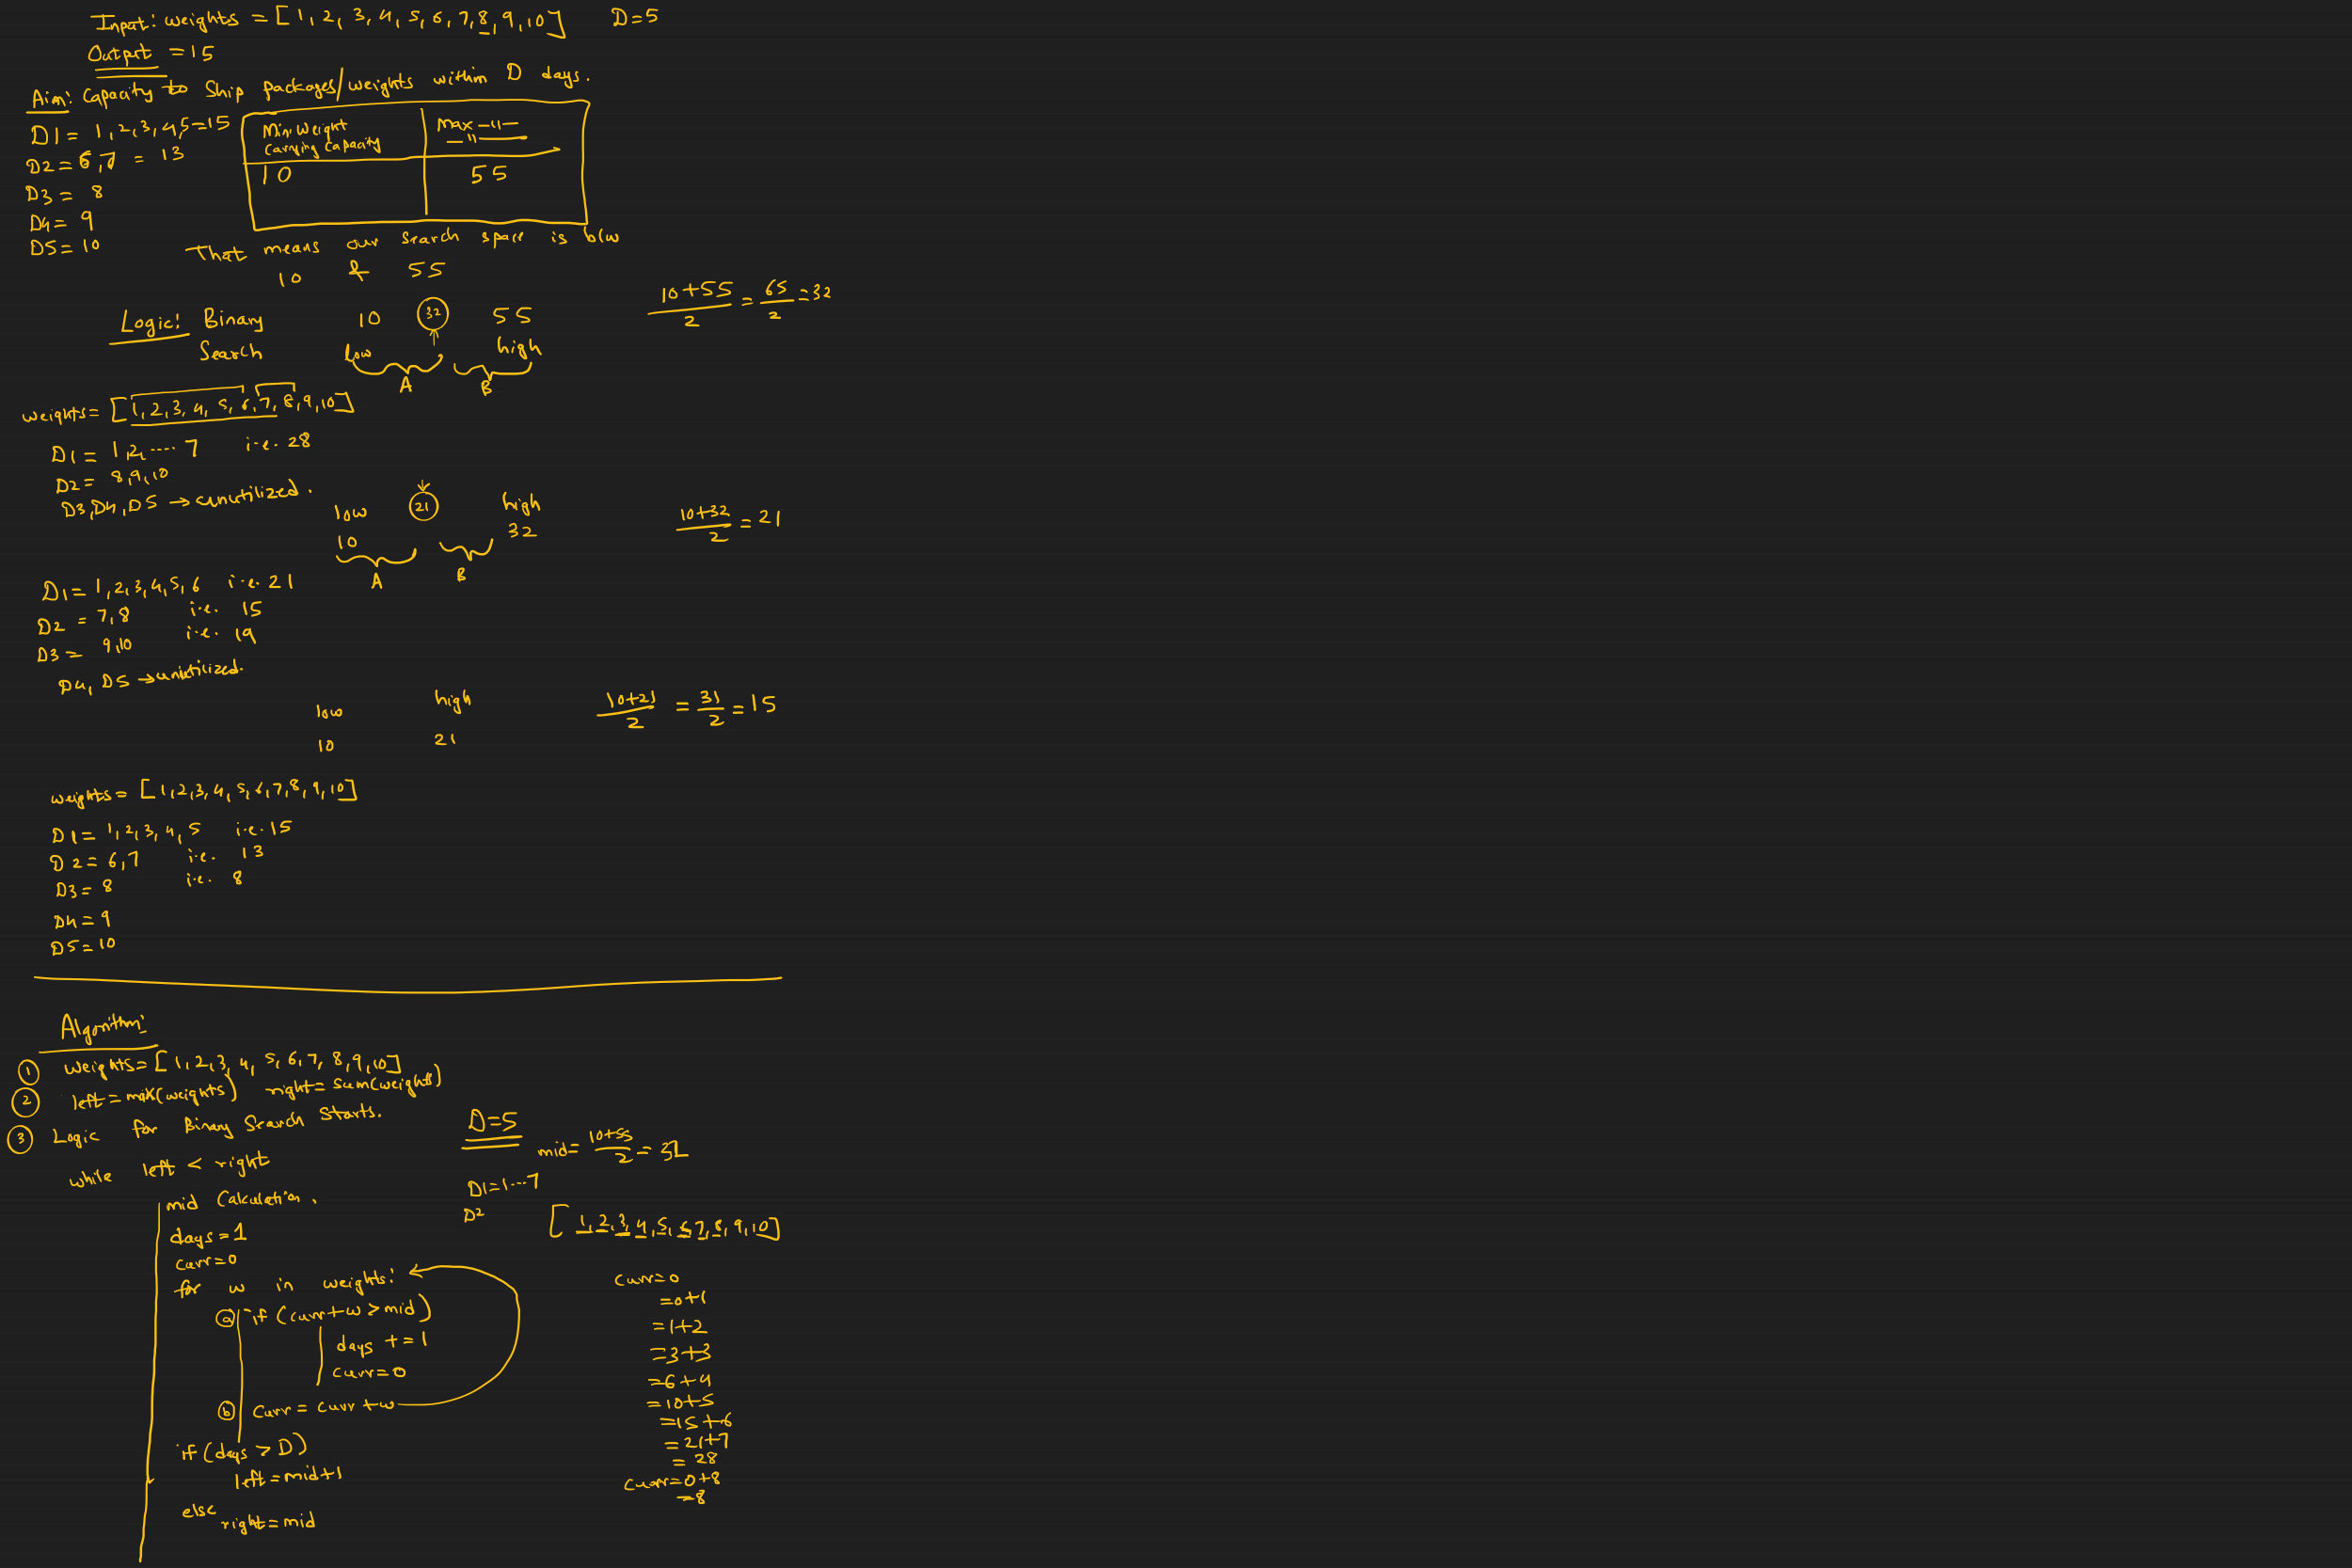 Input: weights = [1, 2, 3, 4, 5, 6, 7, 8, 9, 10] D=5
Output = 15
Aim: Capacity to Ship packages/weights within D days.
D1 = 1,2,3,4,5=15
D2 = 6,7 = 13
D3 = 8
D4 = 9
D5 = 10
Min. Weight Carrying Capacity
Max -11-
-11-
10 55
That means our search space is b/w
10 & 55
Logic: Binary Search
10 32 55
low high
A B
10+55/2 = 65/2 = 32
weights = [1, 2, 3, 4, 5, 6, 7, 8, 9, 10]
D1 = 1,2,....7 i.e. 28
D2 = 8,9,10
D3, D4, D5 → unutilized.
low 21 high
10 32
A B
10+32/2 = 21
D1 = 1,2,3,4,5,6 i.e. 21
D2 = 7,8 i.e. 15
D3 = 9,10 i.e. 19
D4, D5 → unutilized.
low high
10 21
10+21/2 = 31/2 = 15
weights = [1,2,3,4,5,6,7,8,9,10]
D1 = 1,2,3,4,5 i.e. 15
D2 = 6,7 i.e. 13
D3 = 8 i.e. 8
D4 = 9
D5 = 10
Algorithm:
1 weights = [1,2,3,4,5,6,7,8,9,10]
2 left = max(weights) right = sum(weights)
3 Logic for Binary Search Starts.
while left < right
mid Calculation.
days = 1
curr = 0
for w in weights:
a if (curr+w > mid)
days += 1
curr = 0
b curr = curr + w
if (days > D)
left = mid+1
else
right = mid
D=5
mid = 10+55/2 = 32
D1 = 1...7
D2
[1,2,3,4,5,6,7,8,9,10]
curr=0
=0+1
=1+2
=3+3
=6+4
=10+5
=15+6
=21+7
=28
curr=0+8
=8